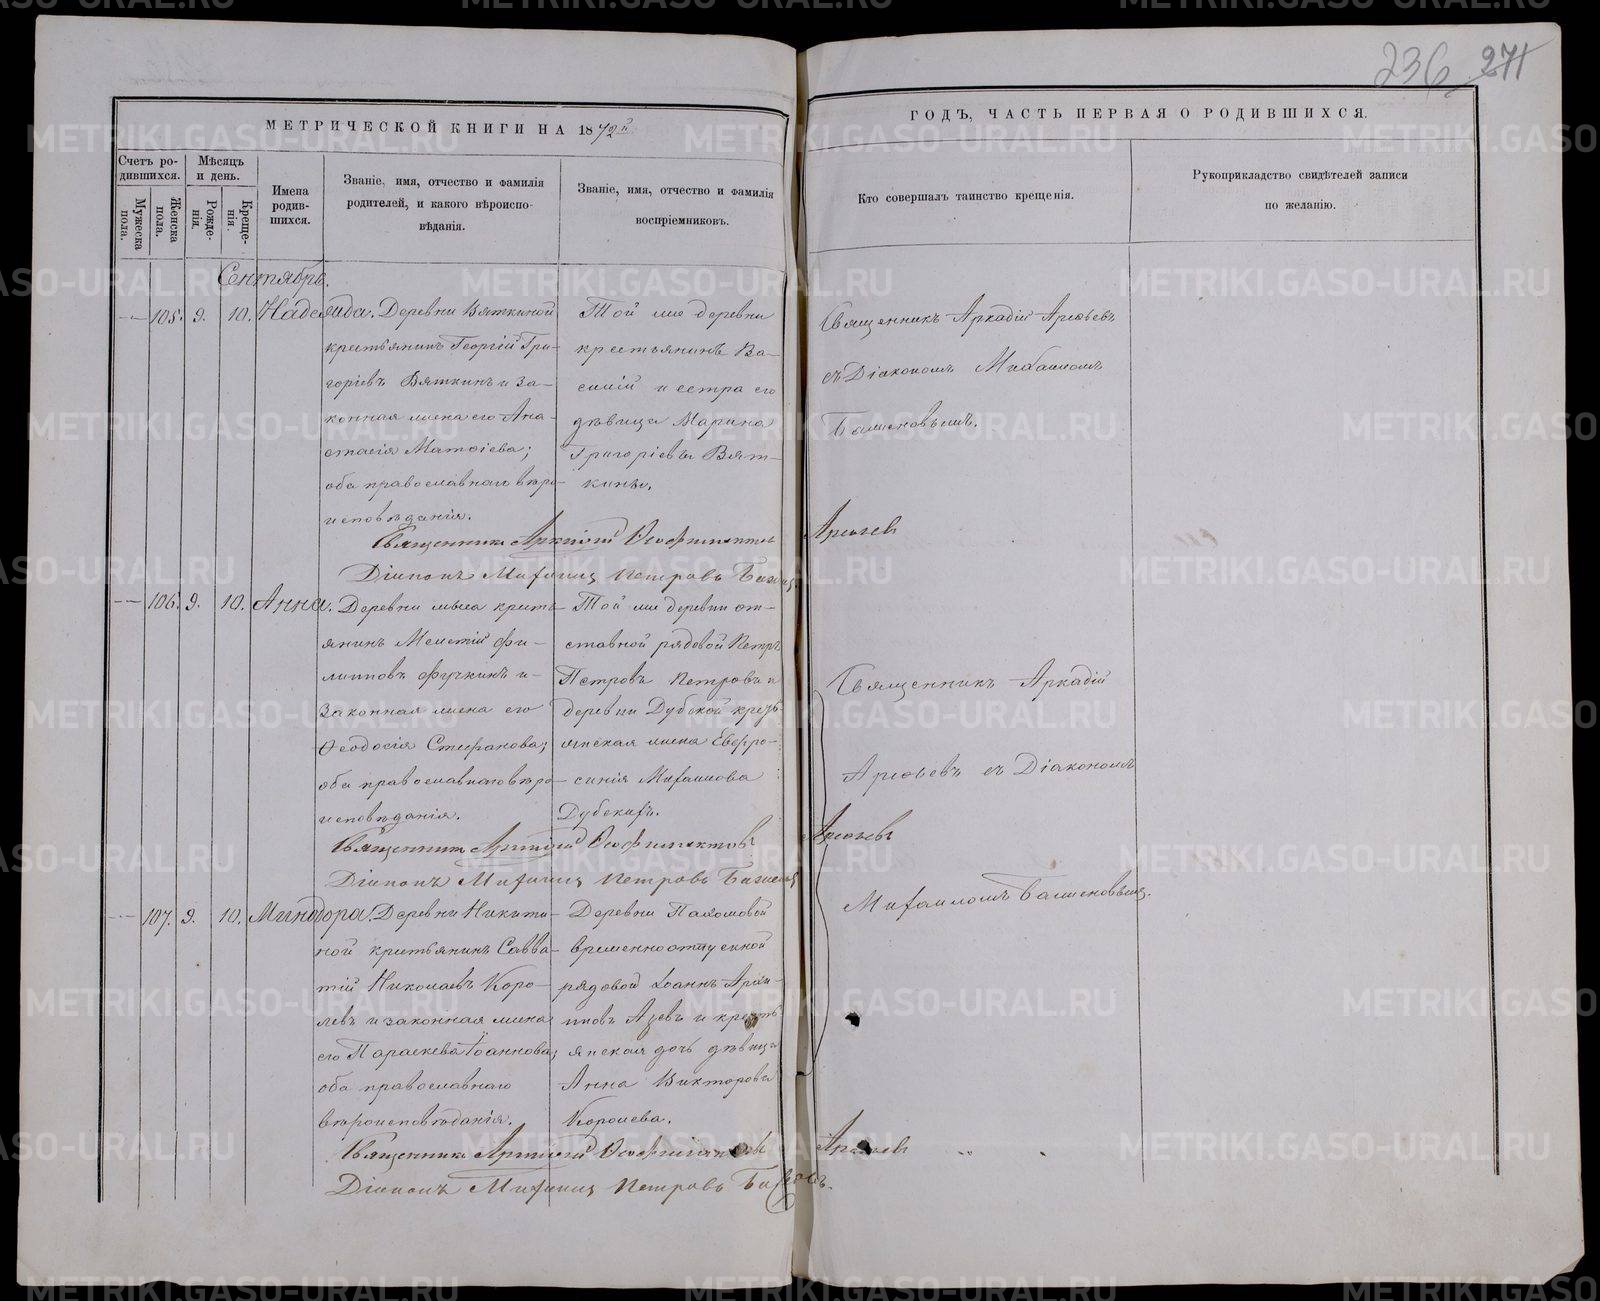 236 271
МЕТРИЧЕСКОЙ КНИГИ НА 1872й
ГОДЪ, ЧАСТЬ ПЕРВАЯ О РОДИВШИХСЯ.
Счетъ ро-
дившихся.
Мужеска
пола.
Женска
пола.
Мѣсяцъ
и день.
Рожде-
нія.
Креще-
нія.
Имена
родив-
шихся.
Званіе, имя, отчество и фамилія
родителей, и какого вѣроиспо-
вѣданія.
Званіе, имя, отчество и фамилія
воспріемниковъ.
Кто совершалъ таинство крещенія.
Рукоприкладство свидѣтелей записи
по желанію.
Сентябрь.
105. 9. 10. Надежда.
Деревни Вяткиной
крестьянинъ Георгій Гри-
горіевъ Вяткинъ и за-
конная жена его Ана-
стасія Матѳіева;
оба православнаго вѣро-
исповѣданія.
Той же деревни
крестьянинъ Ва-
силій и сестра его
дѣвица Марина
Григоріевы Вят-
кины.
Священникъ Аркадій
съ Діакономъ Михаиломъ
Баженовымъ.
Священникъ Аркадій
Діаконъ Михаилъ Петровъ
106. 9. 10. Анна.
Деревни Мыса кресть-
янинъ Мелетій Фи-
липповъ Фучкинъ и
законная жена его
Ѳеодосія Стефанова;
оба православнаго вѣро-
исповѣданія.
Той же деревни от-
ставной рядовой Петръ
Петровъ Петровъ и
деревни Дубской кресть-
янская жена Евфро-
синія Михаилова
Дубскихъ.
Священникъ Аркадій
съ Діакономъ
Михаиломъ Баженовымъ.
Священникъ
Діаконъ Михаилъ Петровъ
107. 9. 10. Минодора.
Деревни Никити-
ной крестьянинъ Савва-
тій Николаевъ Коро-
левъ и законная жена
его Параскева Іоаннова;
оба православнаго
вѣроисповѣданія.
Деревни Пахомовой
временноотпускной
рядовой Іоаннъ Архи-
повъ Азевъ и кресть-
янская дочь дѣвица
Анна Викторова
Королева.
Священникъ
Діаконъ Михаилъ Петровъ
METRIKI.GASO-URAL.RU